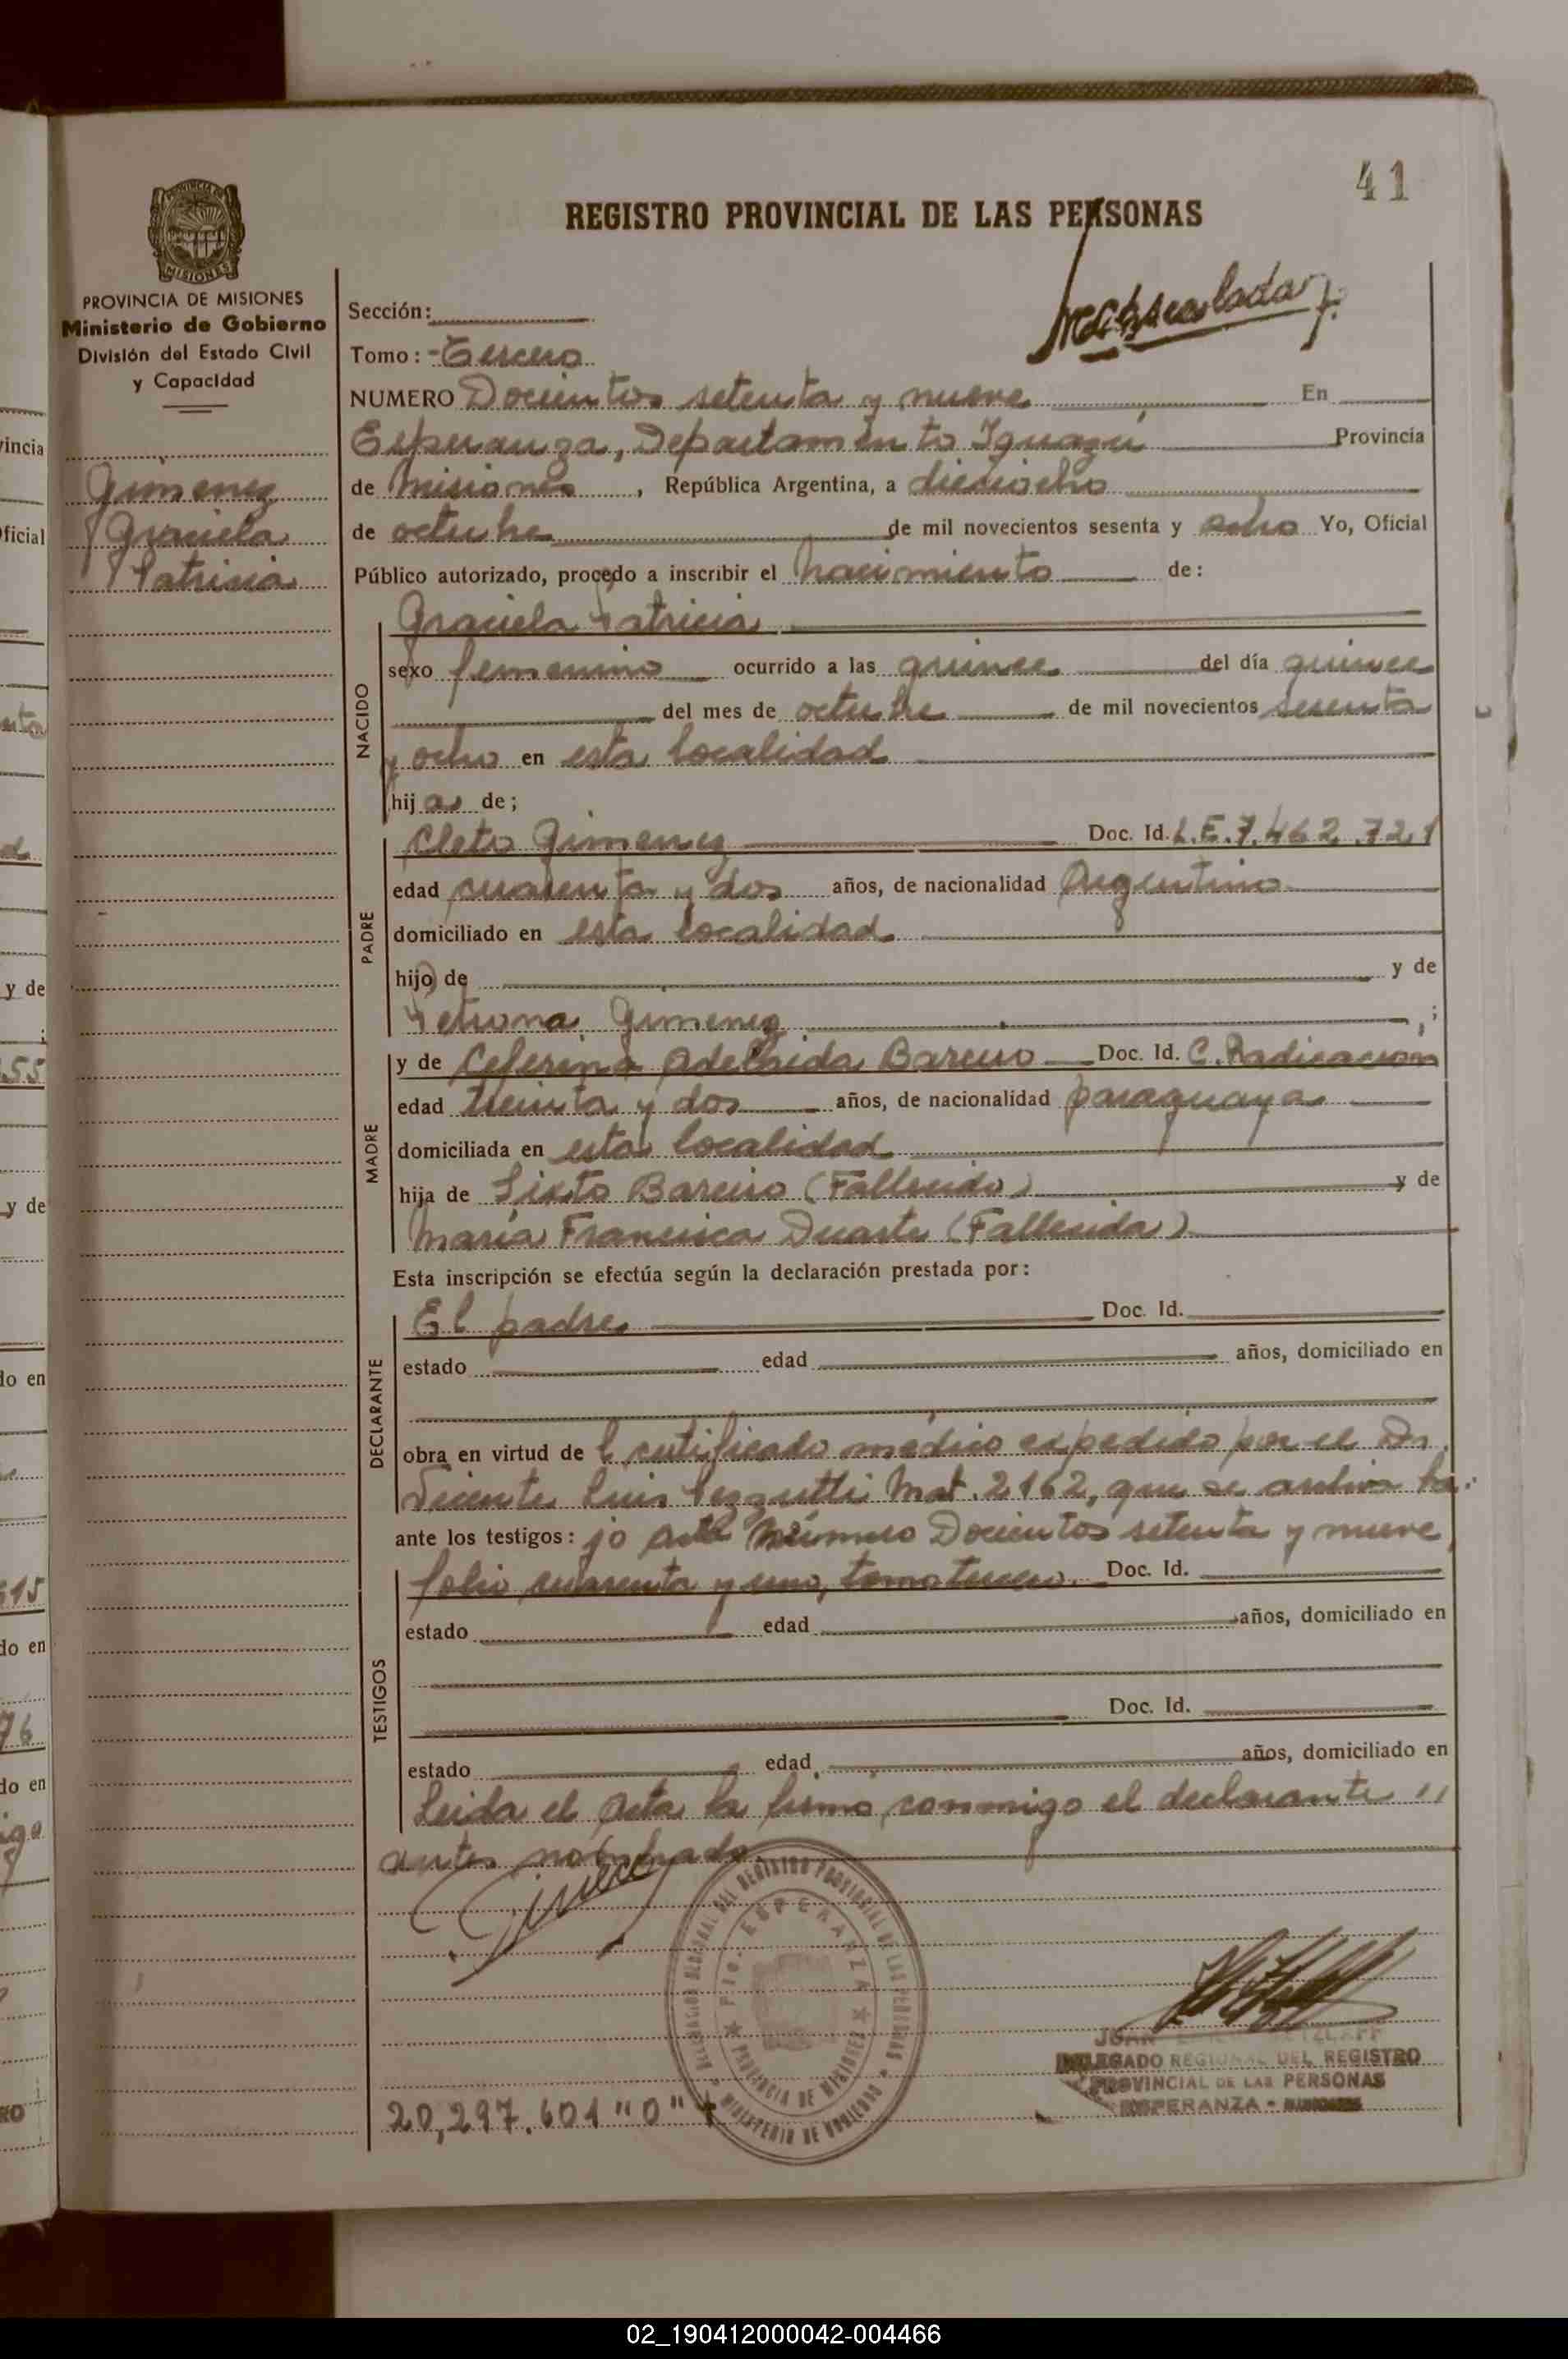 41
REGISTRO PROVINCIAL DE LAS PERSONAS
PROVINCIA DE MISIONES
Ministerio de Gobierno
División del Estado Civil
y Capacidad
Gimenez
Graciela
Patricia
Sección:
Tomo: - Tercero
NUMERO Docientos setenta y nueve En
Esperanza, Departamento Iguazú Provincia
de Misiones, República Argentina, a dieciocho
de octubre de mil novecientos sesenta y ocho Yo, Oficial
Público autorizado, procedo a inscribir el nacimiento de:
Graciela Patricia
NACIDO
sexo femenino ocurrido a las quince del día quince
del mes de octubre de mil novecientos sesenta
y ocho en esta localidad
hija de;
PADRE
Cleto Gimenez Doc. Id. L.E.7.462.721
edad cuarenta y dos años, de nacionalidad Argentino
domiciliado en esta localidad
hijo de y de
Petrona Gimenez ;
MADRE
y de Ceferina Adelaida Bareiro Doc. Id. C. Radicación
edad treinta y dos años, de nacionalidad paraguaya
domiciliada en esta localidad
hija de Sixto Bareiro (Fallecido) y de
María Francisca Duarte (Fallecida)
Esta inscripción se efectúa según la declaración prestada por:
DECLARANTE
El padre Doc. Id.
estado edad años, domiciliado en
obra en virtud de l certificado médico expedido por el Dr.
Vicente Luis Mat. 2162, que se archiva ba-
ante los testigos: jo acta Número Docientos setenta y nueve,
folio cuarenta y uno, tomo tercero. Doc. Id.
TESTIGOS
estado edad años, domiciliado en
Doc. Id.
estado edad años, domiciliado en
Leida el Acta la firmó conmigo el declarante //
antes nombrado.
DEL REGISTRO PROVINCIAL DE LAS PERSONAS
ESPERANZA
PROVINCIA DE MISIONES
MINISTERIO DE GOBIERNO
JUAN
DELEGADO REGIONAL DEL REGISTRO
PROVINCIAL DE LAS PERSONAS
ESPERANZA - MISIONES
20,297.601 "0"
vincia
Oficial
55
y de
y de
do en
915
do en
76
do en
02_190412000042-004466